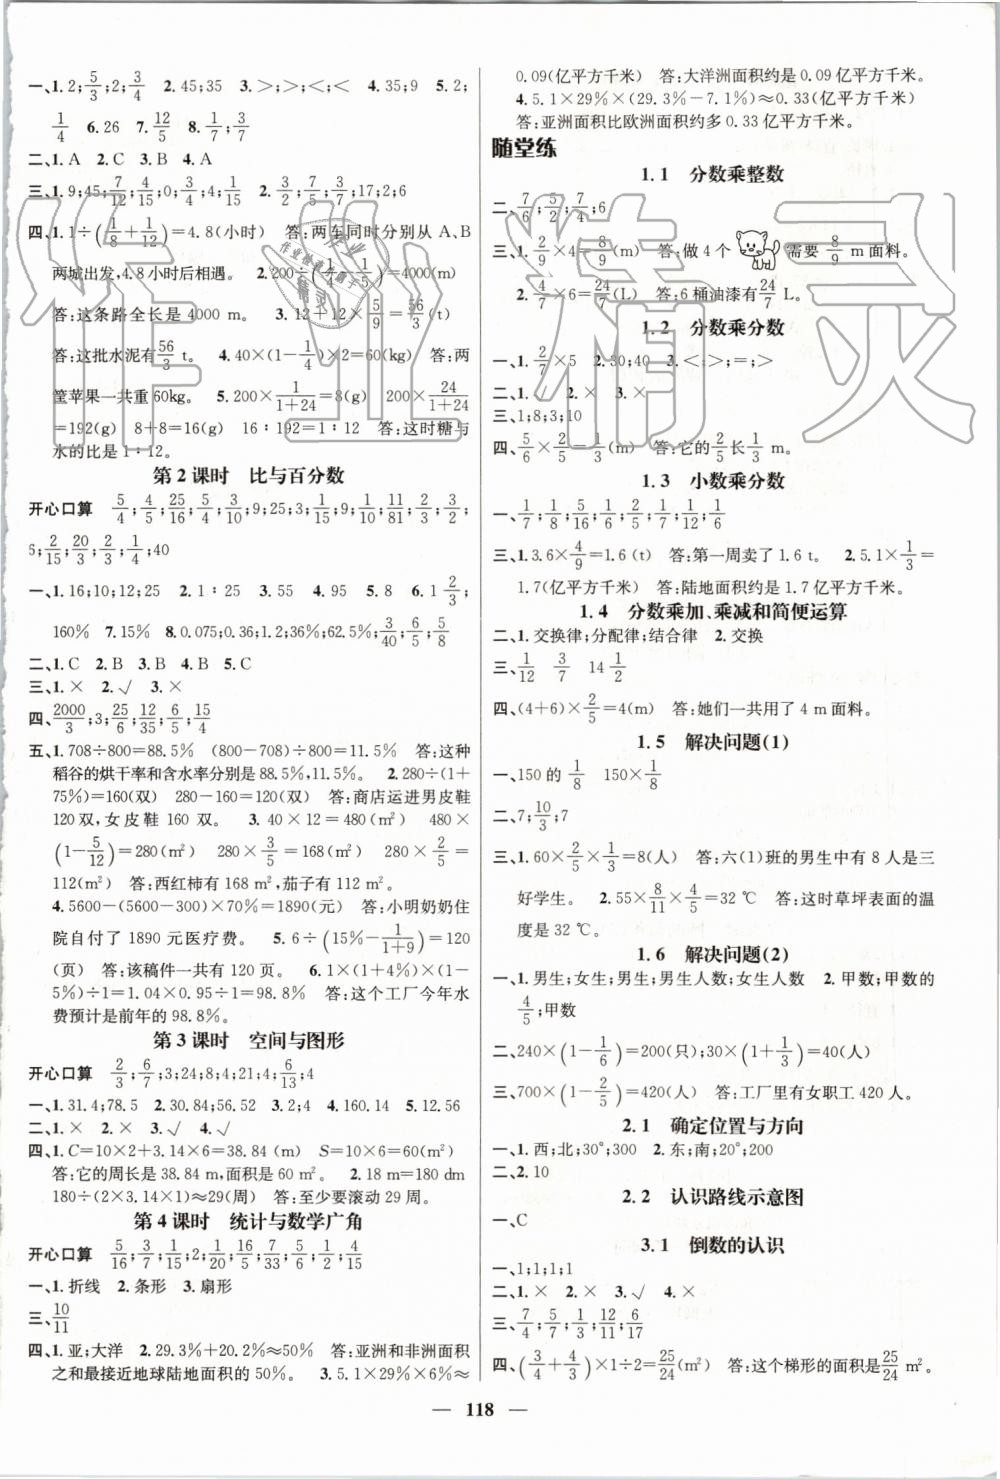 一、1. 2;5/3;2;3/4 2. 45;35 3. >;>;<;< 4. 35;9 5. 2;
1/4 6. 26 7. 12/5 8. 1/7;3/7
二、1. A 2. C 3. B 4. A
三、1. 9;45;7/12;4/15;0;3/4;4;1/15 2. 3/2;3/7;17;2;6
四、1. 1÷(1/8+1/12)=4.8(小时) 答:两车同时分别从 A、B
两城出发,4.8 小时后相遇。 2. 200÷(1/4-1/5)=4000(m)
答:这条路全长是 4000 m。 3. 12+12×5/9=56/3(t)
答:这批水泥有56/3 t。 4. 40×(1-1/4)×2=60(kg) 答:两
筐苹果一共重60kg。 5. 200×1/(1+24)=8(g) 200×24/(1+24)
=192(g) 8+8=16(g) 16∶192=1∶12 答:这时糖与
水的比是 1∶12。
第 2 课时 比与百分数
开心口算 5/4;4/5;25/16;5/4;3/10;9;25;3;1/15;9;1/10;11/81;2/3;3/2;
5;2/15;20/3;2/3;1/4;40
一、1. 16;10;12;25 2. 1∶25 3. 55 4. 95 5. 8 6. 1 2/3;
160% 7. 15% 8. 0.075;0.36;1.2;36%;62.5%;3/40;6/5;5/8
二、1. C 2. B 3. B 4. B 5. C
三、1. × 2. √ 3. ×
四、2000/3;3;25/6;12/35;6/5;15/4
五、1. 708÷800=88.5% (800-708)÷800=11.5% 答:这种
稻谷的烘干率和含水率分别是 88.5%,11.5%。 2. 280÷(1+
75%)=160(双) 280-160=120(双) 答:商店运进男皮鞋
120 双,女皮鞋 160 双。 3. 40×12=480(m²) 480×
(1-5/12)=280(m²) 280×3/5=168(m²) 280×2/5=
112(m²) 答:西红柿有 168 m²,茄子有 112 m²。
4. 5600-(5600-600)×70%=1890(元) 答:小明奶奶住
院自付了 1890 元医疗费。 5. 6÷(15%-1/(1+9))=120
(页) 答:该稿件一共有 120 页。 6. 1×(1+4%)×(1-
5%)÷1=1.04×0.95÷1=98.8% 答:这个工厂今年水
费预计是前年的 98.8%。
第 3 课时 空间与图形
开心口算 2/3;6/7;3;24;8;4;21;4;6/13;4
一、1. 31.4;78.5 2. 30.84;56.52 3. 2;4 4. 160.14 5. 12.56
二、1. × 2. × 3. √ 4. √
四、1. C=10×2+3.14×6=38.84 (m) S=10×6=60(m²)
答:它的周长是 38.84 m,面积是 60 m²。 2. 18 m=180 dm
180÷(2×3.14×1)≈29(周) 答:至少要滚动 29 周。
第 4 课时 统计与数学广角
开心口算 5/16;3/7;1/15;2;1/20;16/5;7/33;6/5;1/2;4/15
一、1. 折线 2. 条形 3. 扇形
三、10/11
四、1. 亚;大洋 2. 29.3%+20.2%≈50% 答:亚洲和非洲面积
之和最接近地球陆地面积的50%。 3. 5.1×29%×6%≈
0.09(亿平方千米) 答:大洋洲面积约是 0.09 亿平方千米。
4. 5.1×29%×(29.3%-7.1%)≈0.33(亿平方千米)
答:亚洲面积比欧洲面积约多 0.33 亿平方千米。
随堂练
1.1 分数乘整数
二、7/6;5/2;7/4;6
三、1. 2/9×4=8/9(m) 答:做 4 个 需要8/9 m 面料。
2. 4/7×6=24/7(L) 答:6 桶油漆有24/7 L。
1.2 分数乘分数
一、1. 2/7×5 2. 30;40 3. <;>;=;>
二、1. √ 2. × 3. ×
三、1;8;3;10
四、5/6×2/5=1/3(m) 答:它的2/5长1/3 m。
1.3 小数乘分数
一、1/7;1/8;5/16;1/6;2/5;1/7;1/12;1/6
三、1. 3.6×4/9=1.6(t) 答:第一周卖了 1.6 t。 2. 5.1×1/3=
1.7(亿平方千米) 答:陆地面积约是 1.7 亿平方千米。
1.4 分数乘加、乘减和简便运算
二、1. 交换律;分配律;结合律 2. 交换
三、1/12 3/7 14 1/2
四、(4+6)×2/5=4(m) 答:她们一共用了 4 m 面料。
1.5 解决问题(1)
一、150的 1/8 150×1/8
二、7;10/3;7
三、1. 60×2/5×1/3=8(人) 答:六(1)班的男生中有 8 人是三
好学生。 2. 55×8/11×4/5=32 ℃ 答:这时草坪表面的温
度是 32 ℃。
1.6 解决问题(2)
一、1. 男生;女生;男生;男生人数;女生人数 2. 甲数;甲数的
4/5;甲数
二、240×(1-1/6)=200(只);30×(1+1/3)=40(人)
三、700×(1-2/5)=420(人) 答:工厂里有女职工 420 人。
2.1 确定位置与方向
一、1. 西;北;30°;300 2. 东;南;20°;200
二、2. 10
2.2 认识路线示意图
一、C
3.1 倒数的认识
一、1;1;1;1
二、1. × 2. × 3. √ 4. ×
三、7/4;5/7;1/3;12/11;6/17
四、(3/4+4/3)×1÷2=25/24(m²) 答:这个梯形的面积是25/24 m²。
118
作业精灵